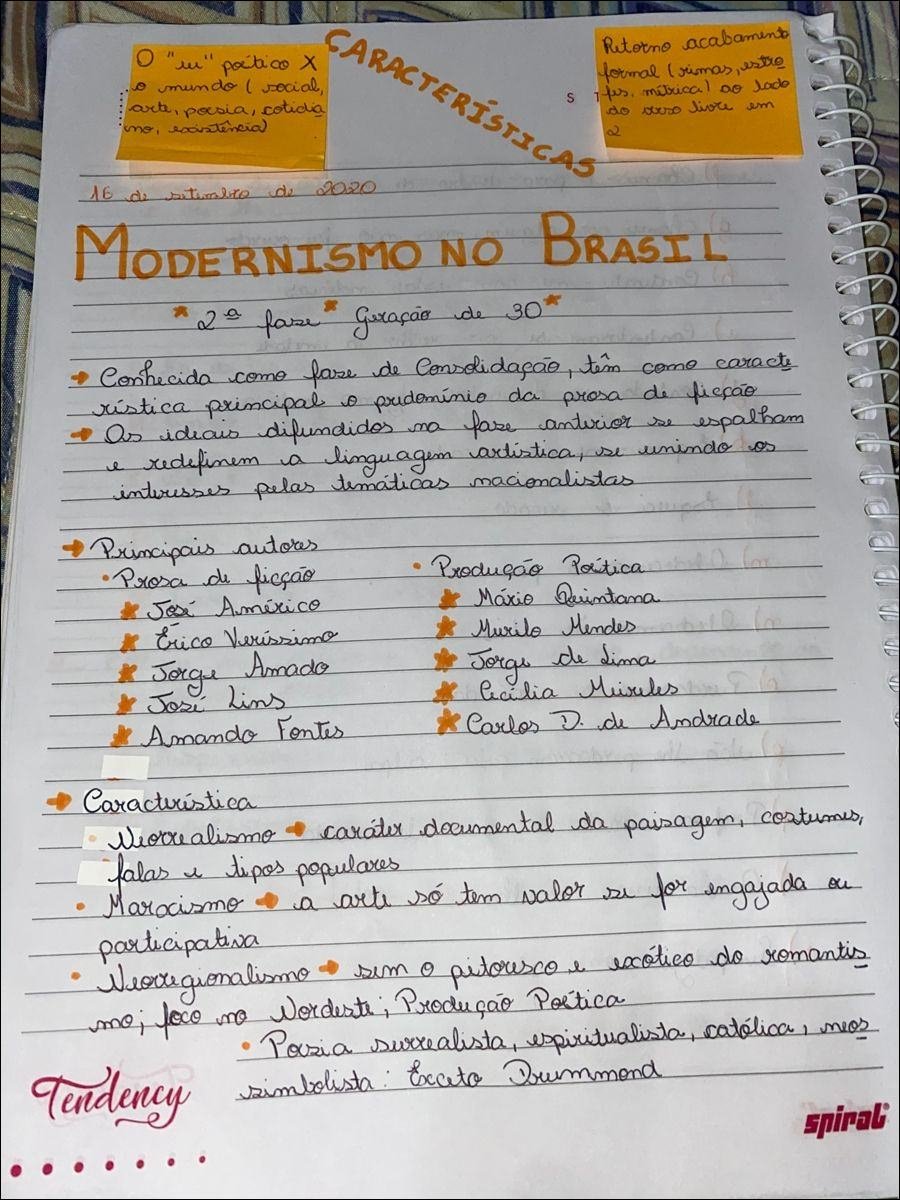 O "eu" poético X
o mundo (social,
arte, poesia, cotidia
no, existência)
CARACTERÍSTICAS
Retorno acabamento
formal (rimas, estro
fes, métrica) ao lado
do verso livre em
2
S T
16 de setembro de 2020
MODERNISMO NO BRASIL
* 2ª fase * Geração de 30 *
→ Conhecida como fase de Consolidação, têm como caracte
rística principal o predomínio da prosa de ficção
→ Os ideais difundidos na fase anterior se espalham
e redefinem a linguagem artística, se unindo os
interesses pelas temáticas nacionalistas
→ Principais autores
• Prosa de ficção
★ José Américo
★ Érico Veríssimo
★ Jorge Amado
★ José Lins
★ Amando Fontes
• Produção Poética
★ Mário Quintana
★ Murilo Mendes
★ Jorge de Lima
★ Cecília Meireles
★ Carlos D. de Andrade
→ Característica
• Neorrealismo → caráter documental da paisagem, costumes,
falas e tipos populares
• Marxismo → a arte só tem valor se for engajada ou
participativa
• Neorregionalismo → sem o pitoresco e exótico do romantis
mo; foco no Nordeste; Produção Poética
• Poesia surrealista, espiritualista, católica, neos
simbolista: Exceto Drummond
Tendency
spiral